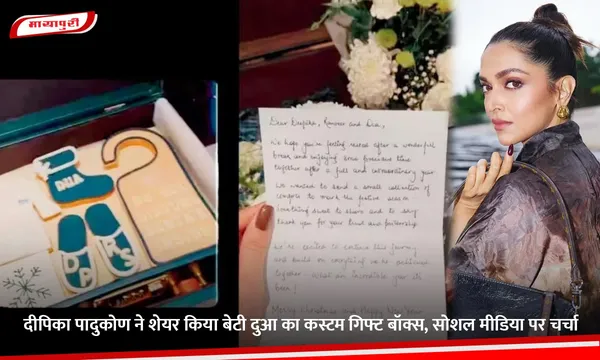 मायापुरी
DUA
DP
RS
Dear Deepika, Ranveer and Dua,
We hope you're feeling rested after a wonderful
break and enjoying some time
together after a full and extraordinary year
We wanted to send a small collection of
comforts to mark the festive season
something sweet to share and to say
thank you for your trust and partnership
We're excited to continue this journey
and build on everything we've achieved
together. What an incredible year it's
been!
Merry Christmas and Happy New Year
दीपिका पादुकोण ने शेयर किया बेटी दुआ का कस्टम गिफ्ट बॉक्स, सोशल मीडिया पर चर्चा